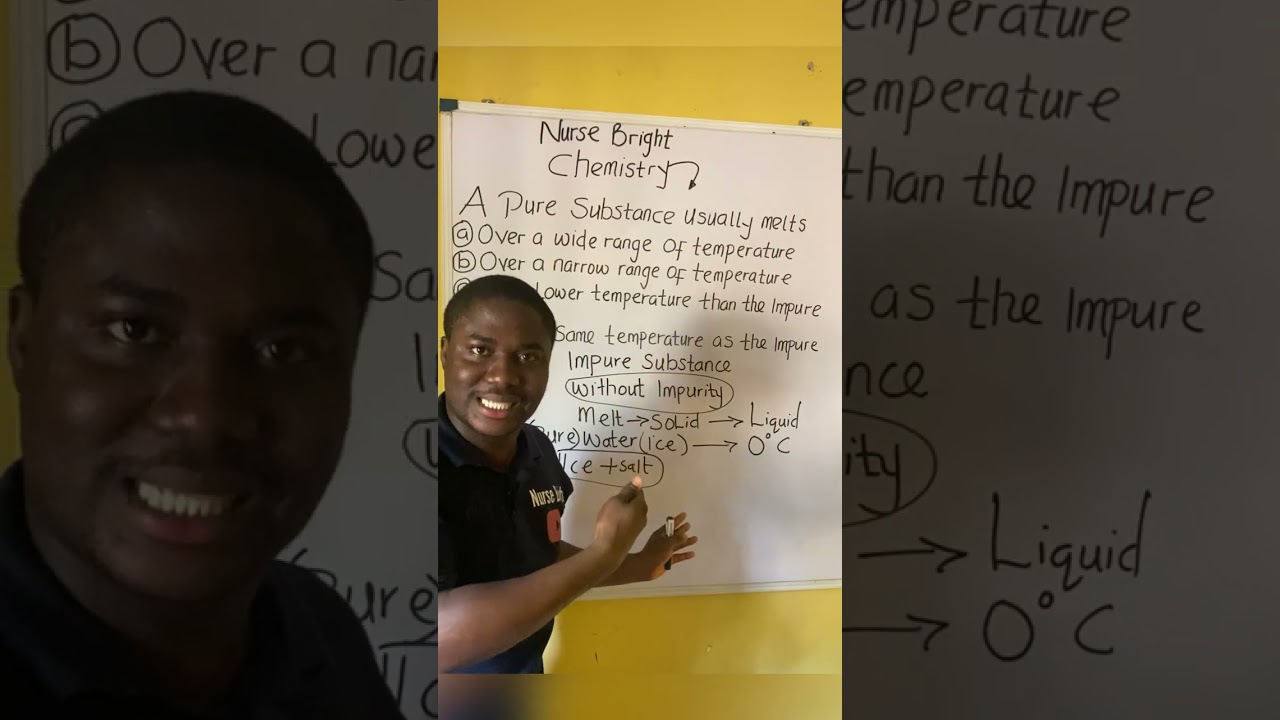 Nurse Bright
Chemistry
A Pure Substance usually melts
(a) Over a wide range of temperature
(b) Over a narrow range of temperature
Lower temperature than the Impure
Same temperature as the Impure
Impure Substance
Without Impurity
Melt → Solid → Liquid
Pure) Water (ice) → 0°C
Ice + salt
Nurse